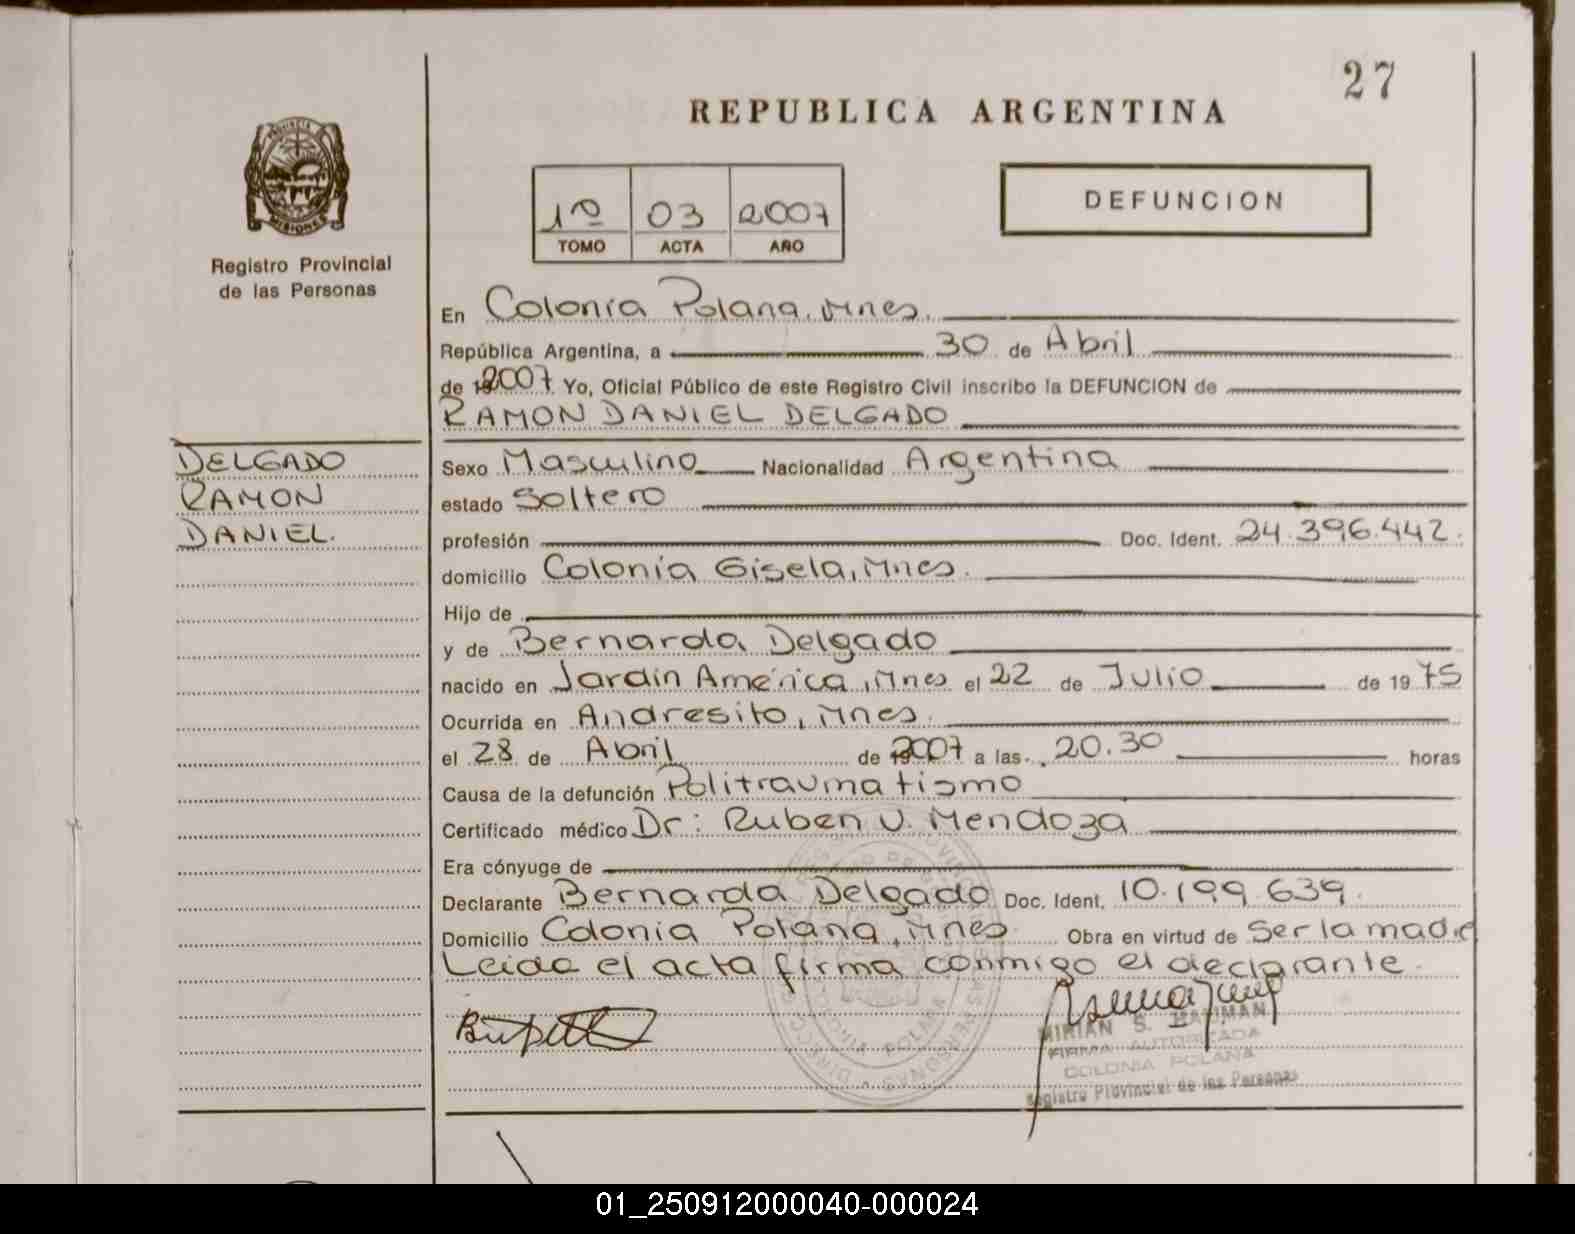 27
REPUBLICA ARGENTINA
PROVINCIA
MISIONES
Registro Provincial
de las Personas
1º 03 2007
TOMO ACTA AÑO
DEFUNCION
En Colonia Polana, Mnes.
República Argentina, a 30 de Abril
de 2007 Yo, Oficial Público de este Registro Civil inscribo la DEFUNCION de
RAMON DANIEL DELGADO
DELGADO
RAMON
DANIEL.
Sexo Masculino Nacionalidad Argentina
estado Soltero
profesión Doc. Ident. 24.396.442.
domicilio Colonia Gisela, Mnes.
Hijo de
y de Bernarda Delgado
nacido en Jardín América, Mnes el 22 de Julio de 1975
Ocurrida en Andresito, Mnes.
el 28 de Abril de 2007 a las 20.30 horas
Causa de la defunción Politraumatismo
Certificado médico Dr: Ruben V. Mendoza
Era cónyuge de
Declarante Bernarda Delgado Doc. Ident. 10.199.639.
Domicilio Colonia Polana, Mnes Obra en virtud de Ser la madre
Leida el acta firma conmigo el declarante.
MIRIAN S.
FIRMA AUTORIZADA
COLONIA POLANA
Registro Provincial de las Personas
01_250912000040-000024